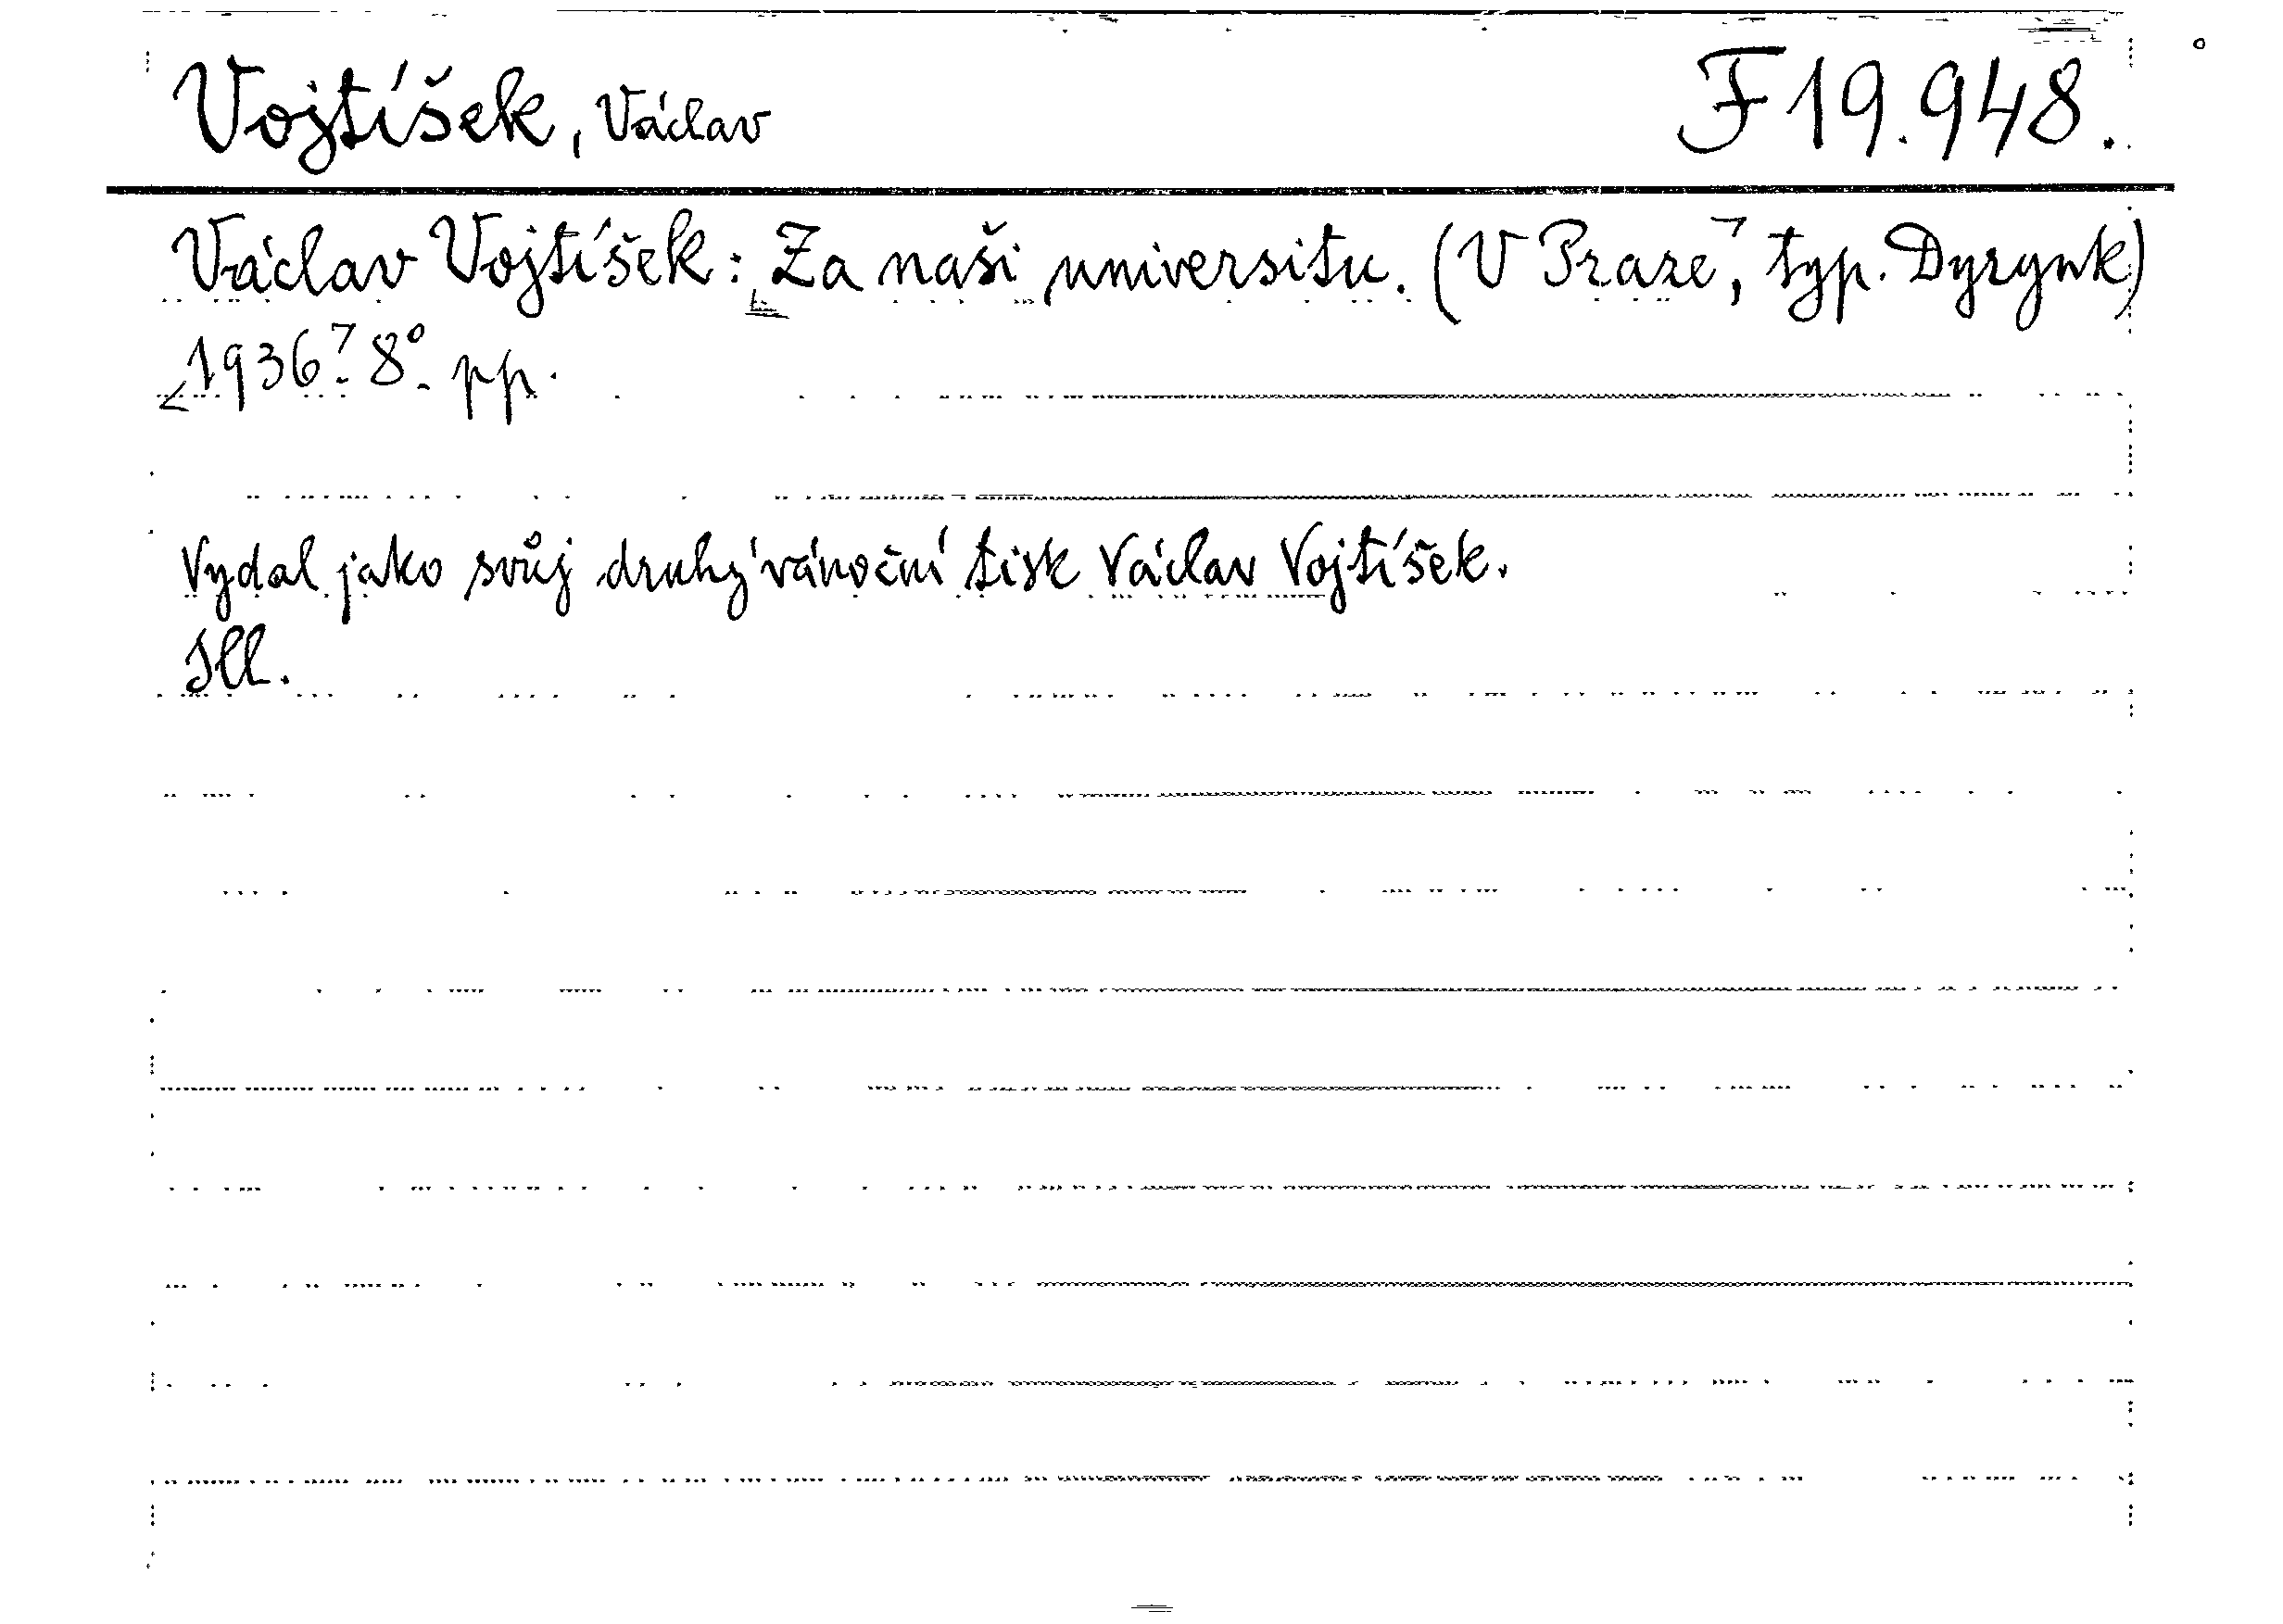 Vojtíšek, Václav F 19.948.
Václav Vojtíšek: Za naši universitu. (V Praze⌝, typ. Dyrynk)
⌞1936⌝. 8°. pp.
Vydal jako svůj druhý vánoční tisk Václav Vojtíšek.
Ill.